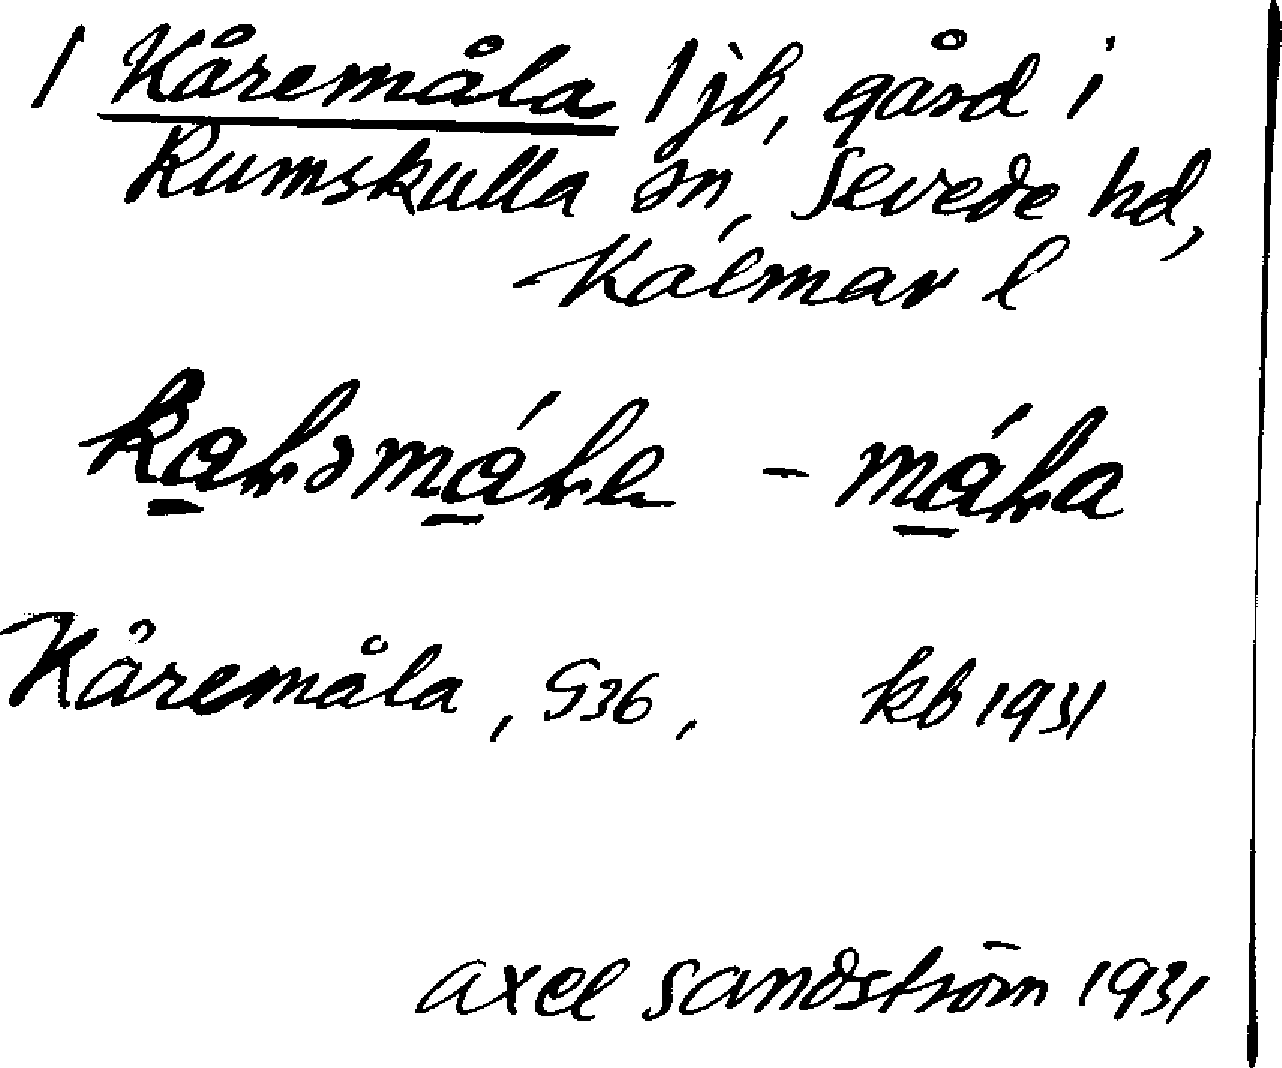 1 Kåremåla 1 jb, gård i
Rumskulla sn, Sevede hd,
Kalmar l
Kåremåla, G36, kb 1931
Axel Sandström 1931